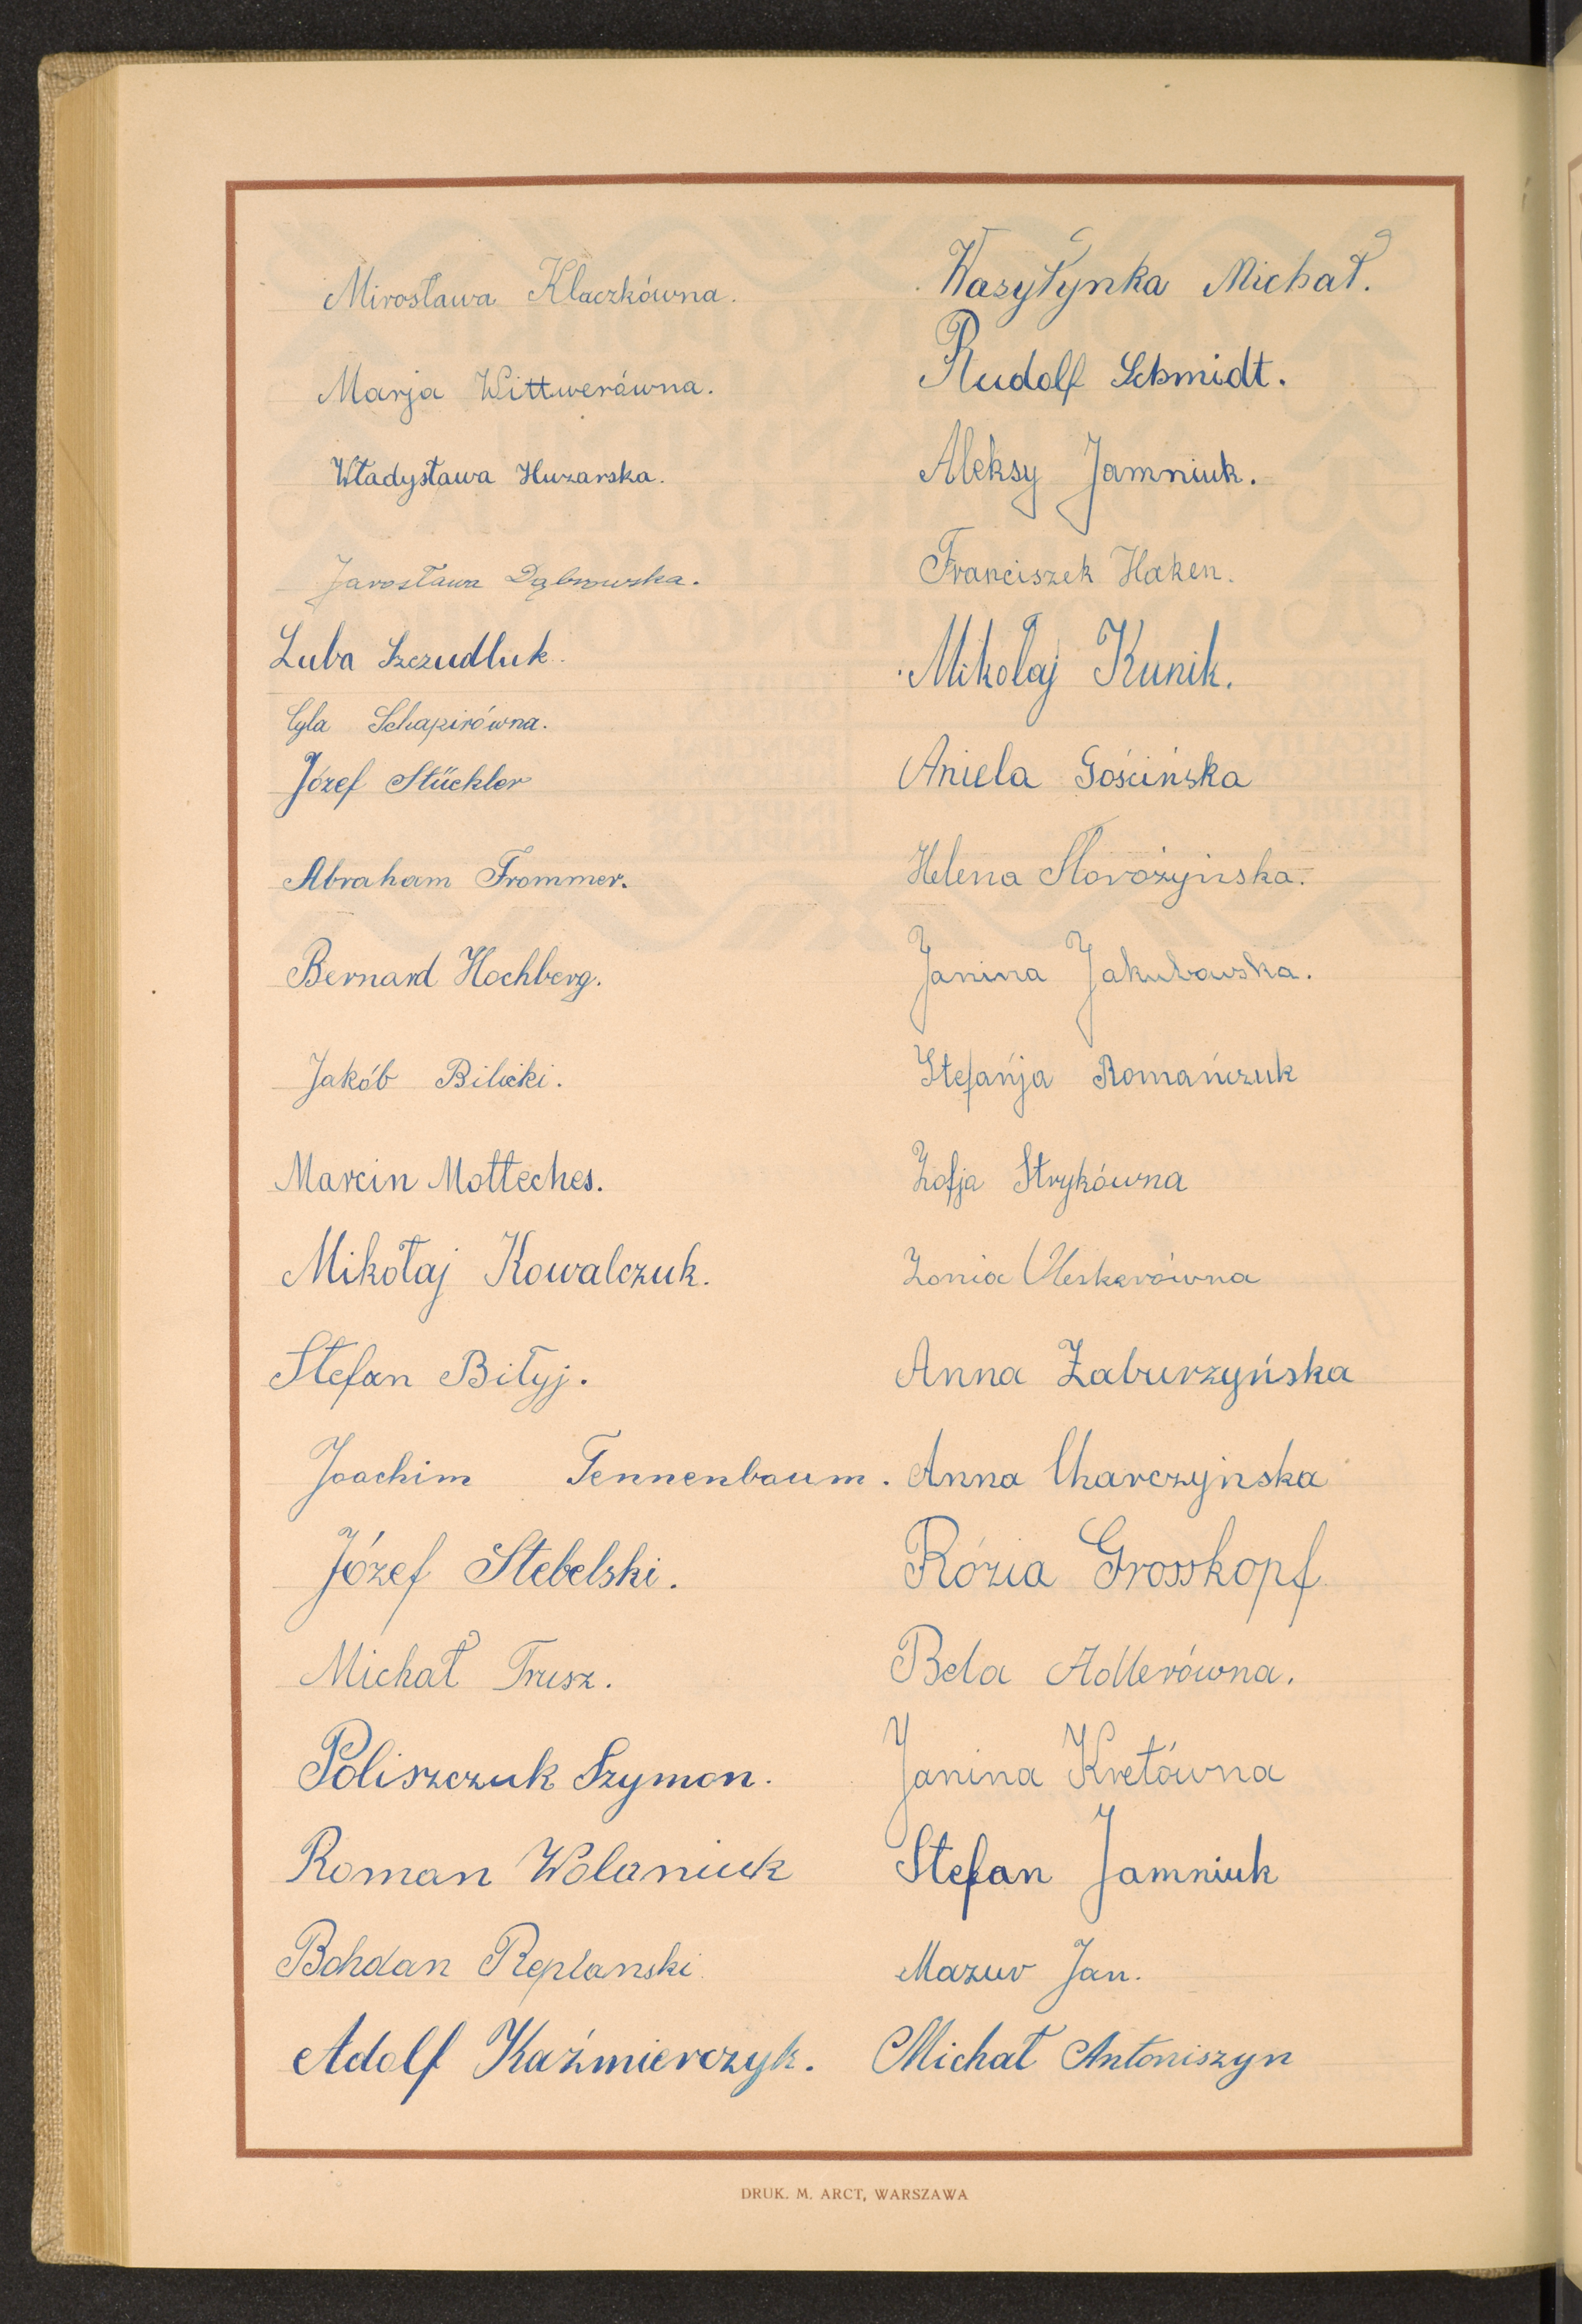 Mirosława Klaczkówna.
Marja Wittwerówna.
Władysława Huzarska.
Jarosława Dąbrowska.
Luba Szczudluk.
Cyla Schapirówna.
Józef Stückler
Abraham Frommer.
Bernard Hochberg.
Jakób Bilecki.
Marcin Motteches.
Mikołaj Kowalczuk.
Stefan Biłyj.
Joachim Tennenbaum.
Józef Stebelski.
Michał Trusz.
Poliszczuk Szymon.
Roman Wolaniuk
Bohdan Replanski
Adolf Kaźmierczyk.
Wasyłynka Michał.
Rudolf Schmidt.
Aleksy Jamniuk.
Franciszek Haken.
Mikolaj Kunik.
Aniela Gościńska
Helena
Janina Jakubowska.
Stefańja Romańczuk
Zofja Strykówna
Zonia
Anna Zaburzyńska
Anna Charczyjnska
Rózia Grosskopf
Bela Adlerówna.
Janina Kretówna
Stefan Jamniuk
Mazur Jan.
Michał Antoniszyn
DRUK. M. ARCT, WARSZAWA